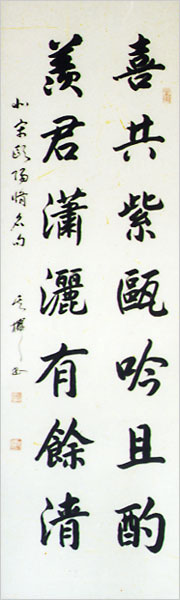 喜共紫甌吟且酌
羨君瀟灑有餘清
北宋歐陽脩名句